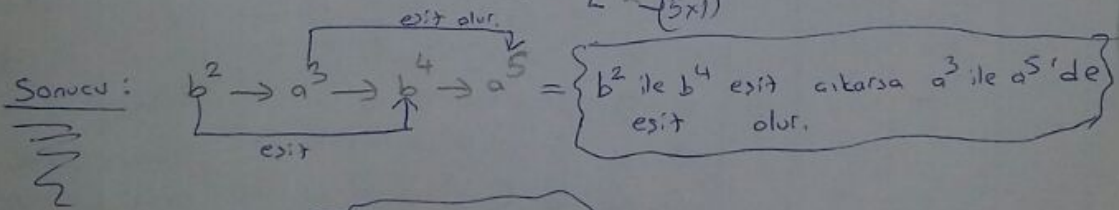 (5x1)
eşit olur.
Sonucu : b² → a³ → b⁴ → a⁵ = { b² ile b⁴ eşit çıkarsa a³ ile a⁵'de
eşit olur. }
eşit